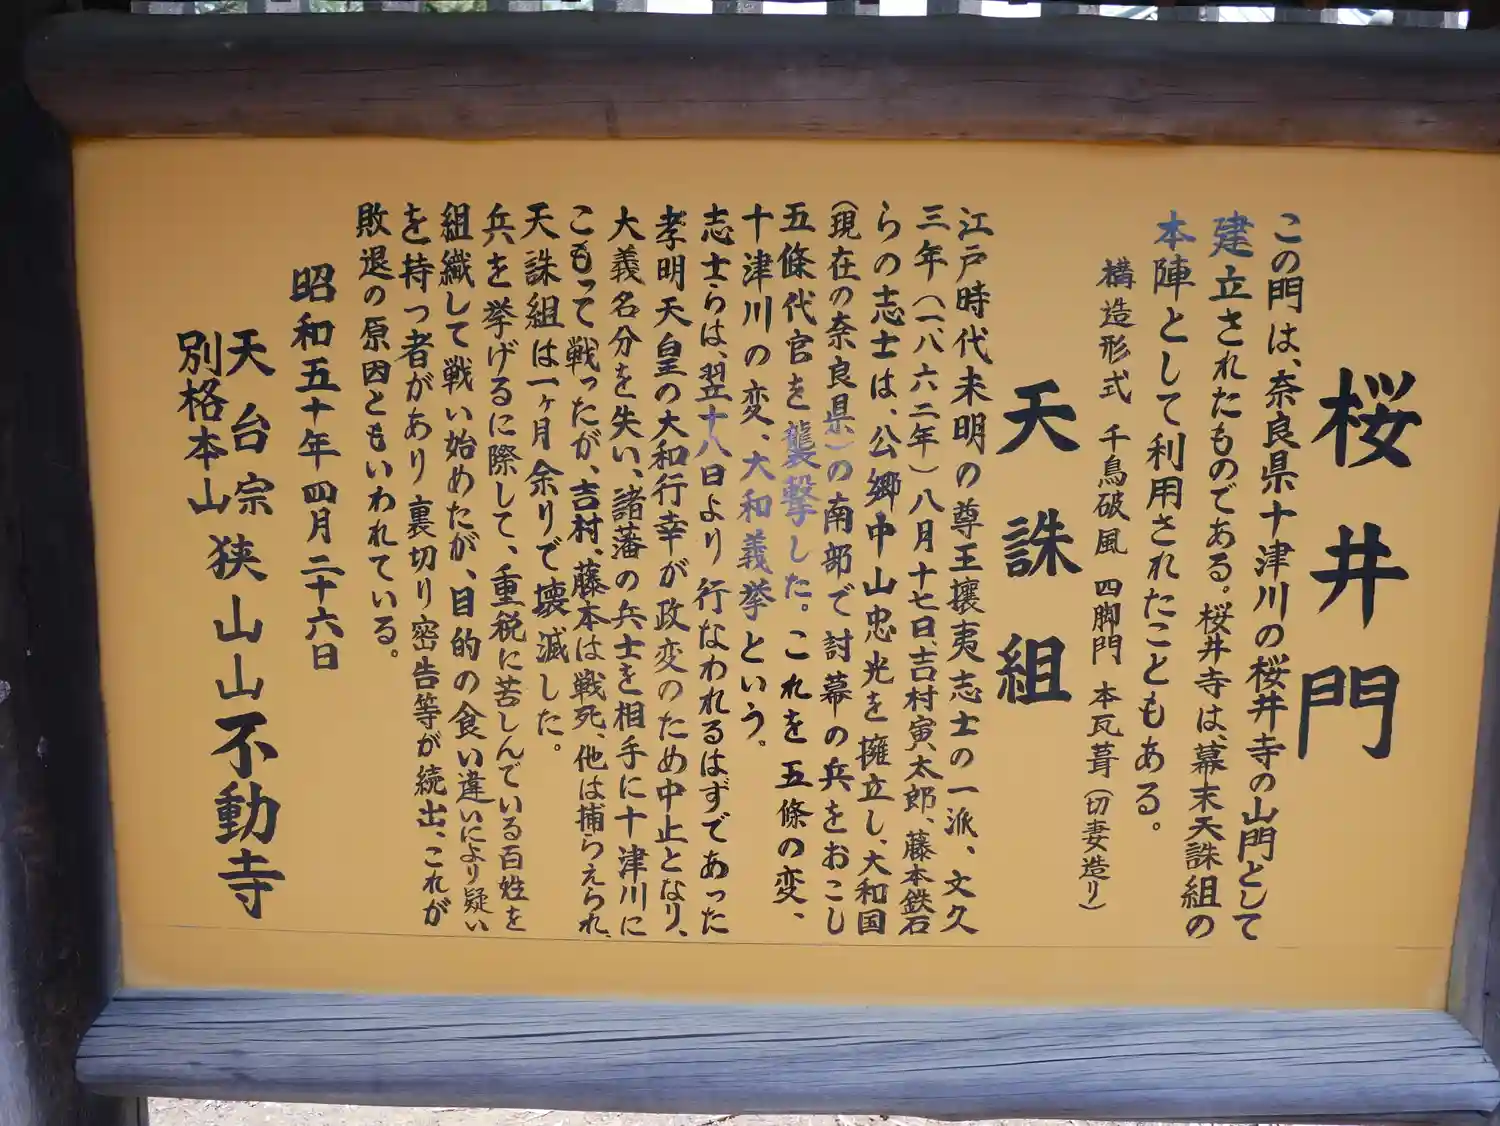 桜井門
この門は、奈良県十津川の桜井寺の山門として
建立されたものである。桜井寺は、幕末天誅組の
本陣として利用されたこともある。
構造形式 千鳥破風 四脚門 本瓦葺(切妻造り)
天誅組
江戸時代末明の尊王攘夷志士の一派、文久
三年(一八六二年)八月十七日吉村寅太郎、藤本鉄石
らの志士は、公郷中山忠光を擁立し、大和国
(現在の奈良県)の南部で討幕の兵をおこし
五條代官を襲撃した。これを五條の変、
十津川の変、大和義挙という。
志士らは、翌十八日より行なわれるはずであった
孝明天皇の大和行幸が政変のため中止となり、
大義名分を失い、諸藩の兵士を相手に十津川に
こもって戦ったが、吉村、藤本は戦死、他は捕らえられ、
天誅組は一ヶ月余りで壊滅した。
兵を挙げるに際して、重税に苦しんでいる百姓を
組織して戦い始めたが、目的の食い違いにより疑い
を持つ者があり裏切り密告等が続出、これが
敗退の原因ともいわれている。
昭和五十年四月二十六日
天台宗
別格本山
狭山山不動寺